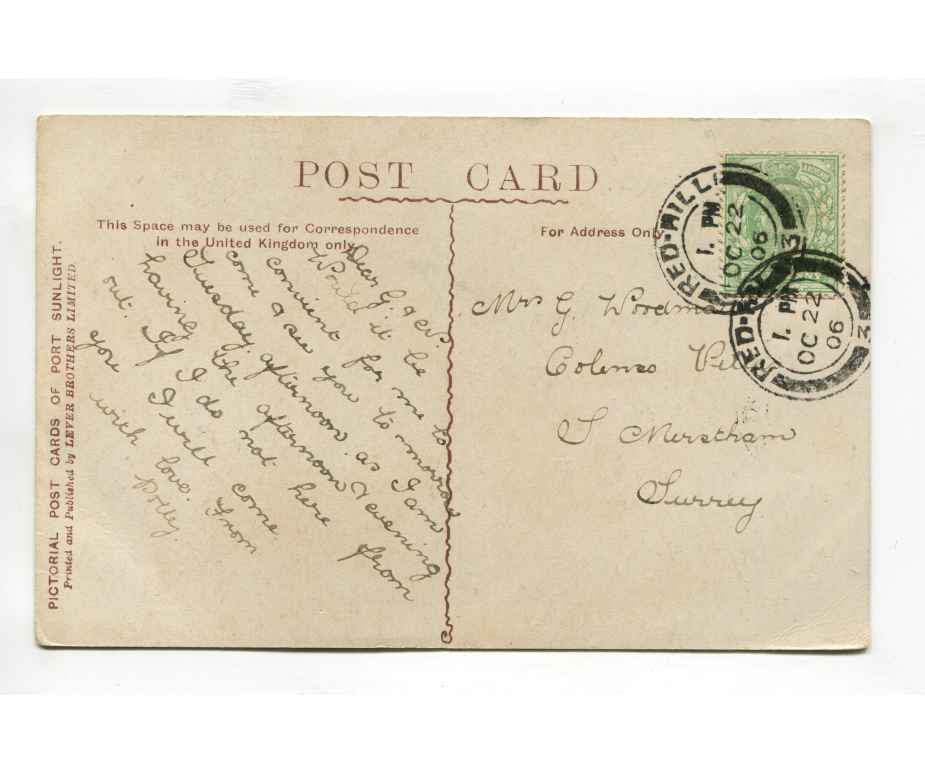 POST CARD
This Space may be used for Correspondence
in the United Kingdom only
For Address Only
PICTORIAL POST CARDS OF PORT SUNLIGHT.
Printed and Published by LEVER BROTHERS LIMITED.
Dear G. &
Would it be
convient for me to
come & see you to-morrow
Tuesday, afternoon. as I am
having the afternoon & evening
out. If I do not here from
you I will come
with love. From
Polly.
Mrs G. Woodm
Colenso
S Merstham
Surrey
RED-HILL
1. PM
OC 22
06
3
RED-HILL
1. PM
OC 22
06
3